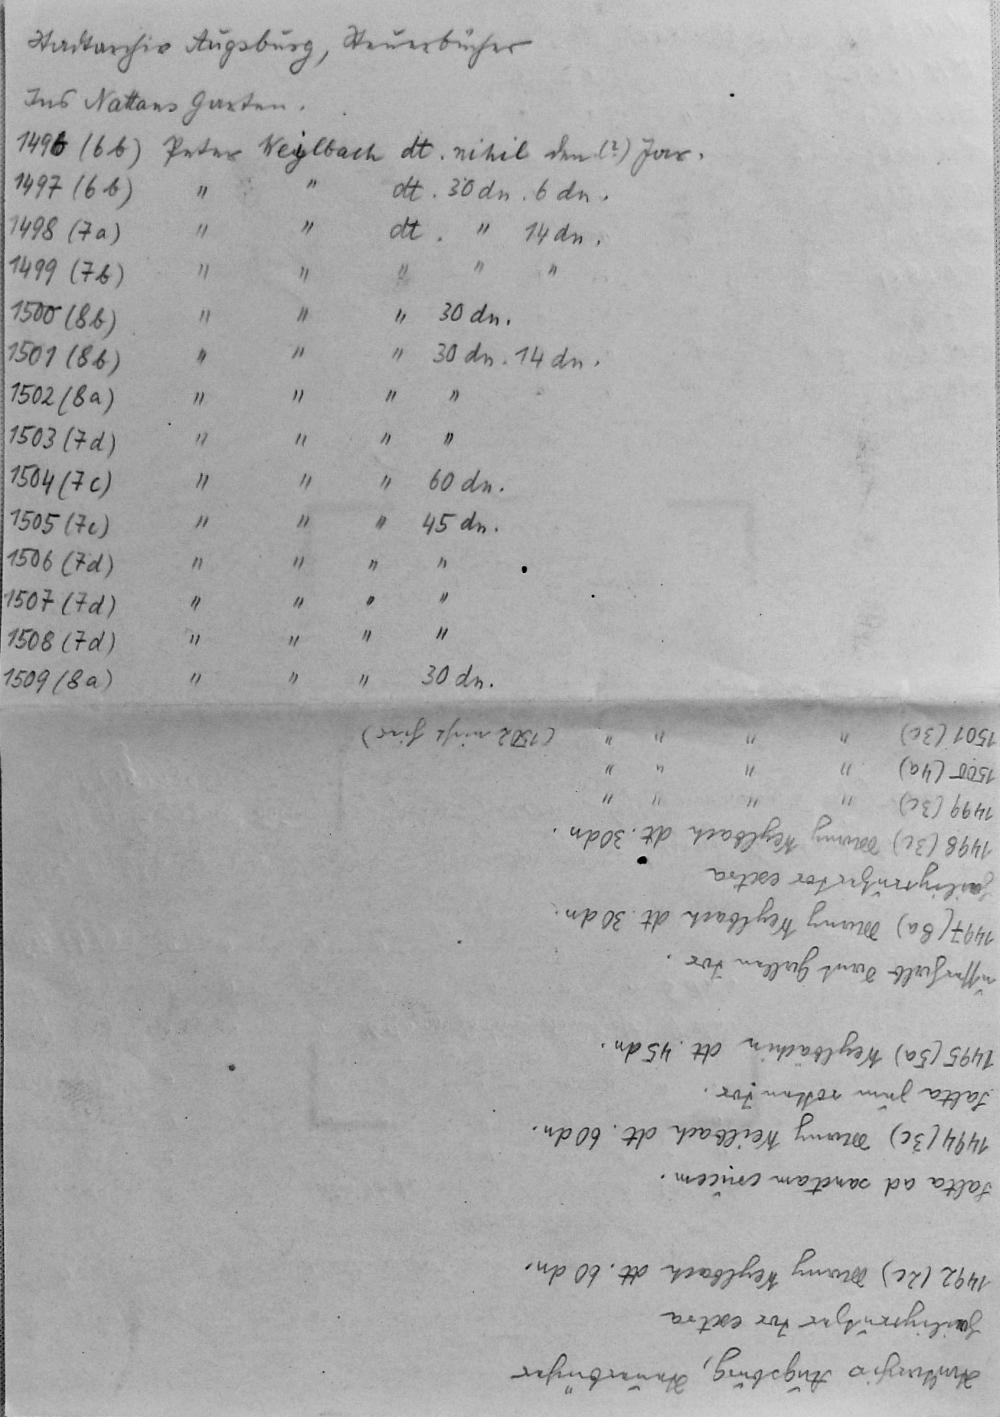 Stadtarchiv Augsburg, Steuerbücher
Ins Nattans Garten.
1496 (6b) Peter Weylbach dt. nihil den (?) Jar.
1497 (6b) " " dt. 30 dn. 6 dn.
1498 (7a) " " dt. " 14 dn.
1499 (7b) " " " " "
1500 (8b) " " " 30 dn.
1501 (8b) " " " 30 dn. 14 dn.
1502 (8a) " " " "
1503 (7d) " " " "
1504 (7c) " " " 60 dn.
1505 (7c) " " " 45 dn.
1506 (7d) " " " "
1507 (7d) " " " "
1508 (7d) " " " "
1509 (8a) " " " 30 dn.
Stadtarchiv Augsburg, Steuerbücher
heiligkreutzer tor extra
1492 (2c) Weylbach dt. 60 dn.
Salta ad sanctam crucem.
1494 (3c) Weilbach dt. 60 dn.
Salta zum rotten tor.
1495 (5a) Weylbächin dt. 45 dn.
usserhalb sant gallen tor.
1497 (8a) Weylbach dt. 30 dn.
heiligkreutzer tor extra
1498 (3c) Weylbach dt. 30 dn.
1499 (3c) " " " "
1500 (4a) " " " "
1501 (3c) " " " " (1502 nicht hier)